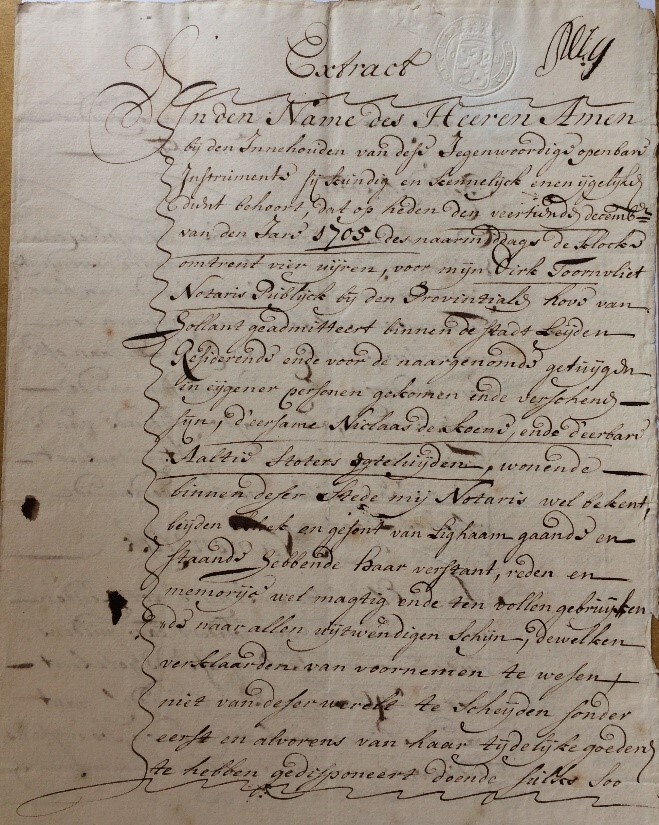 Extract
In den Name des Heeren Amen
bij den Innehouden van dese Jegenwoordige openbare
Instrumente sij kundig en kennelijck eenen ijgelijke
dient behoort, dat op heden den veerthinde decemb.
van den Jare 1705 des naarmiddags de Klocke
omtrent vier uijren, voor mijn Dirk Toornvliet
Notaris Publijck bij den Provintiale hove van
Hollant geadmitteert binnen de stadt Leijden
Residerende ende voor de naargenomde getuijgen
in eijgener personen gekomen ende verschene
sijn, d'eersame Niclaas de Koene, ende d'eerbare
Aaltie Stoters egteluijden, wonende
binnen deser Stede mij Notaris wel bekent,
beijden en gesont van Lighaam gaande en
staande hebbende haar verstant, reden en
memorije wel magtig ende ten vollen gebruijken
de naar allen uijtwendigen schijn, dewelken
verklaarden van voornemen te wesen,
niet van deser werelt te scheijden sonder
eerst en alvorens van haar tijdelijke goeden
te hebben gedisponeert doende sulks soo